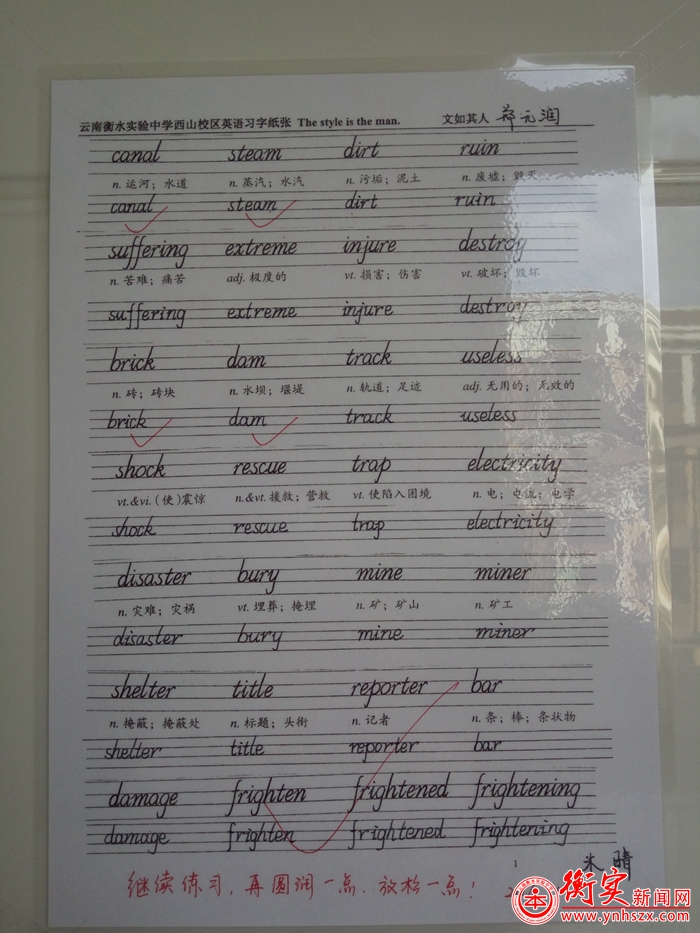 云南衡水实验中学西山校区英语习字纸张 The style is the man. 文如其人 郑元润
canal steam dirt ruin
n. 运河；水道 n. 蒸汽；水汽 n. 污垢；泥土 n. 废墟；毁灭
canal steam dirt ruin
suffering extreme injure destroy
n. 苦难；痛苦 adj. 极度的 vt. 损害；伤害 vt. 破坏；毁坏
suffering extreme injure destroy
brick dam track useless
n. 砖；砖块 n. 水坝；堰堤 n. 轨道；足迹 adj. 无用的；无效的
brick dam track useless
shock rescue trap electricity
vt.&vi. (使)震惊 n.&vt. 援救；营救 vt. 使陷入困境 n. 电；电流；电学
shock rescue trap electricity
disaster bury mine miner
n. 灾难；灾祸 vt. 埋葬；掩埋 n. 矿；矿山 n. 矿工
disaster bury mine miner
shelter title reporter bar
n. 掩蔽；掩蔽处 n. 标题；头衔 n. 记者 n. 条；棒；条状物
shelter title reporter bar
damage frighten frightened frightening
damage frighten frightened frightening
1
朱晴
继续练习，再圆润一点、放松一点！
衡实新闻网
www.ynhszx.com